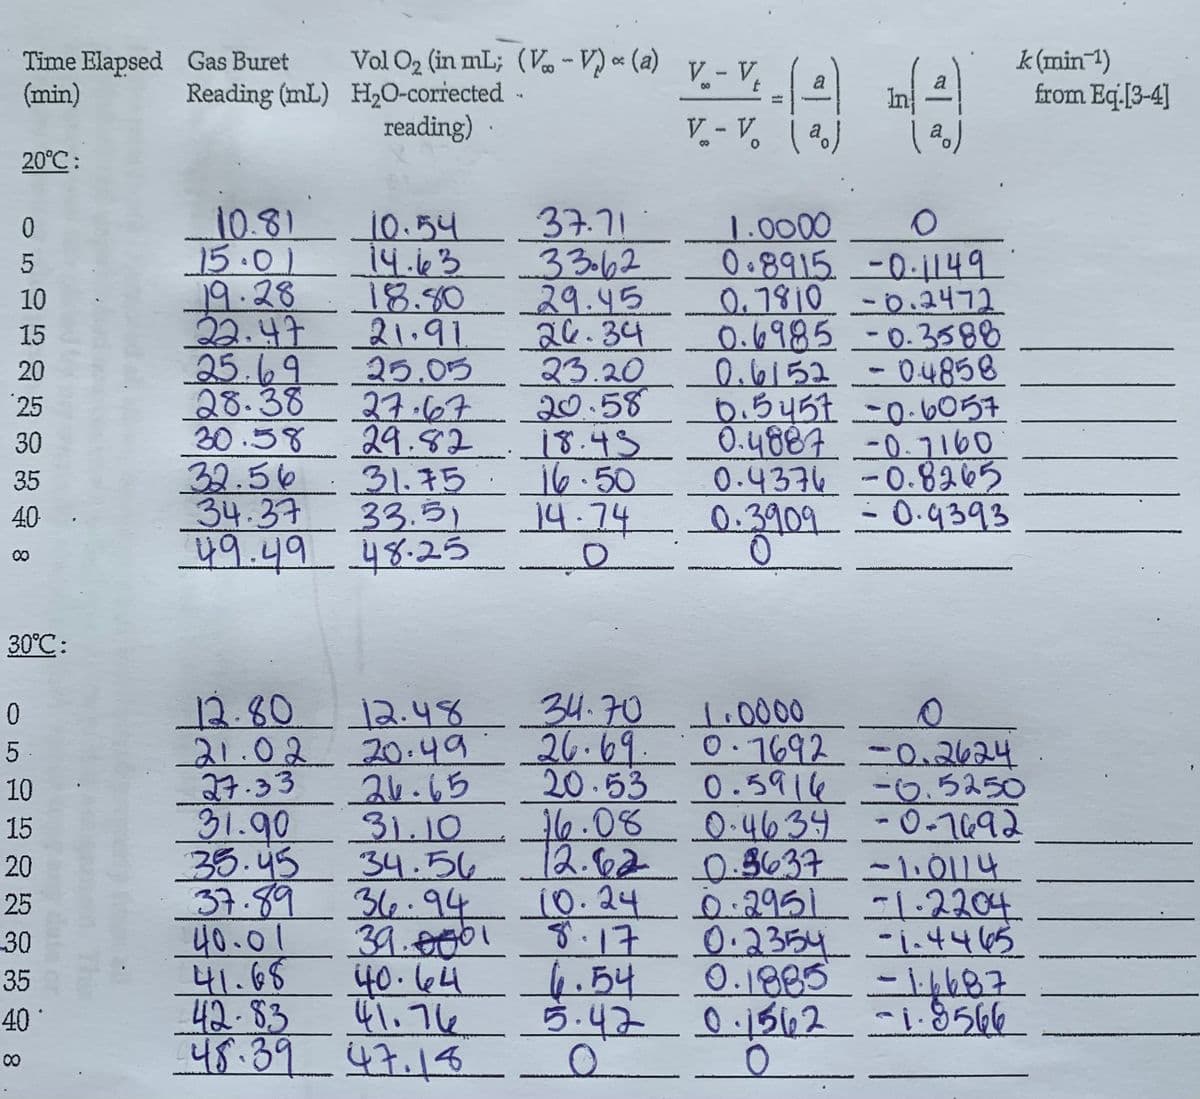 Time Elapsed Gas Buret Vol O₂ (in mL; (V∞ - Vt) ∝ (a) V∞ - Vt / V∞ - V₀ = (a / a₀) ln (a / a₀) k (min⁻¹)
(min) Reading (mL) H₂O-corrected from Eq.[3-4]
reading)
20°C:
0 10.81 10.54 37.71 1.0000 0
5 15.01 14.63 33.62 0.8915 -0.1149
10 19.28 18.80 29.45 0.7810 -0.2472
15 22.47 21.91 26.34 0.6985 -0.3588
20 25.69 25.05 23.20 0.6152 -0.4858
25 28.38 27.67 20.58 0.5457 -0.6057
30 30.58 29.82 18.43 0.4887 -0.7160
35 32.56 31.75 16.50 0.4376 -0.8265
40 34.37 33.51 14.74 0.3909 -0.9393
∞ 49.49 48.25 0 0
30°C:
0 12.80 12.48 34.70 1.0000 0
5 21.02 20.49 26.69 0.7692 -0.2624
10 27.33 26.65 20.53 0.5916 -0.5250
15 31.90 31.10 16.08 0.4634 -0.7692
20 35.45 34.56 12.62 0.3637 -1.0114
25 37.89 36.94 10.24 0.2951 -1.2204
30 40.01 39.01 8.17 0.2354 -1.4465
35 41.68 40.64 6.54 0.1885 -1.6687
40 42.83 41.76 5.42 0.1562 -1.8566
∞ 48.39 47.18 0 0